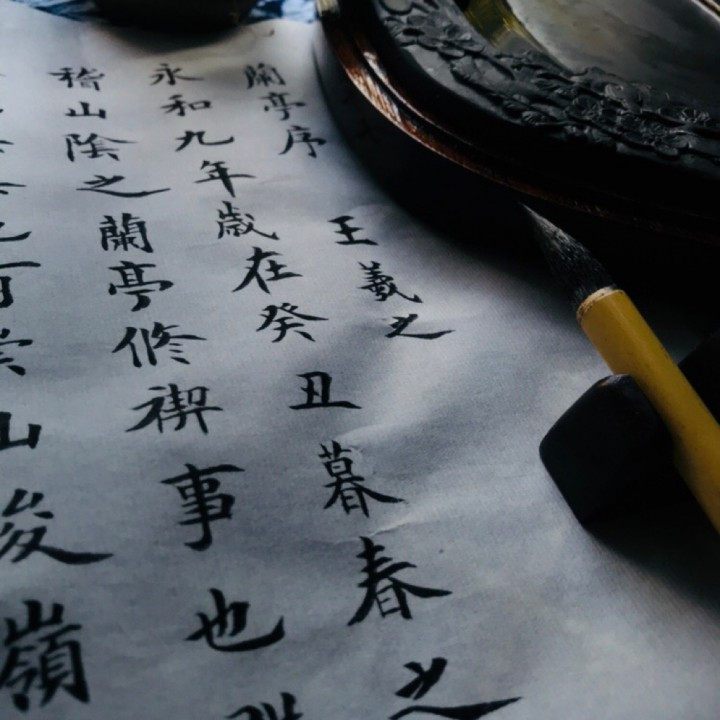 蘭亭序 王羲之
永和九年歲在癸丑暮春之
稽山陰之蘭亭修禊事也
山峻嶺